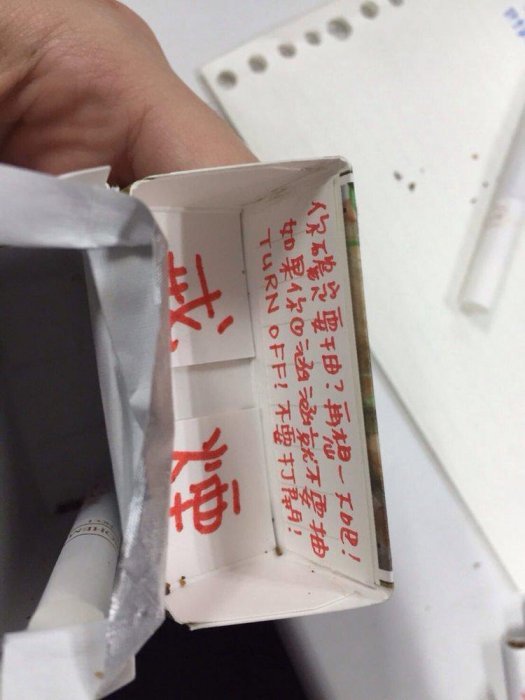 你確定要抽?再想一下吧!
如果你涵涵就不要抽
TURN OFF! 不要打開!
戒煙